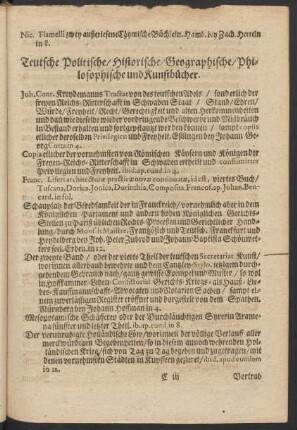 Nic. Flamelli zwey außerlesene Chymische Büchlein. Hamb. bey Zach. Herteln
in 8.
Teutsche Politische/ Historische/ Geographische/ Phi-
losophische und Kunstbücher.
Joh. Conr. Kreydemanns Tractat von des teutschen Adels / sonderlich der
freyen Reichs-Ritterschafft in Schwaben Staat / Stand/ Ehren/
Würde/ Freyheit / Recht/ Gerechtigkeit und alten Herkommen
und daß sie bey diesem bis wieder vordringende Beschwerde und Mißbräuch
in Bestand erhalten und fortgepflantzet werden können / sampt copiis
etlicher derselben Privilegien und Freyheit. Eßlingen bey Johann Ge-
org in 4.
Copia etlicher der vornemsten von Römischen Käysern und Königen der
Freyen-Reichs-Ritterschafft in Schwaben ertheilt und confirmirter
Privilegien und Freyheit. ibid. ap. eund. in 4.
Franc. Liseri architecturæ practicæ novæ continuat, id est, viertes Buch/
Tuscana, Dorica, Jonica, Corinthia, Composita. Francof. ap. Johan. Ben-
card. in fol.
Schauplatz der Beredsamkeit der in Franckreich/ vornehmlich aber in dem
Königlichen Parlament und andern hohen Königlichen Gerichts
Stellen zu Pariß üblichen Rechts-Proceß und Gerichtlicher Hand-
lung/ durch Mons. le Maistre, Frantzösisch und Teutsch. Franckfurt und
Heydelberg bey Joh. Peter Zubrod und Johann Baptista Schönwet-
ters seel. Erben. in 12.
Der zweyte Band / oder der vierte Theil der teutschen Secretariat Kunst/
worinnen allerhand bewehrte und dem Cantzley-Stylo, jetzigem durch-
gehendem Gebrauch nach/ gantz gemesse Exempel und Muster / so wol
in Hoff- Cammer- Lehen- Consistorial- Gerichts- Kriegs- als Hauß- Lie-
bes- Kauffmannschafft- Advocaten und Notarien Sachen / sampt ei-
nem zuverläßigen Register eröffnet und dargestellt von dem Spahten.
Nürnberg bey Johann Hoffman in 4.
Mesopotamische Schäferey oder der Durchläuchtigen Syrerin Arame-
na fünffter und letzter Theil. ib. ap. eund. in 8.
Der verunruhigte Holländische Löw/ worinnen der völlige Verlauff aller
merckwürdigen Begebenheiten/ so in diesem annoch wehrenden Hol-
ländischen Krieg/ sich von Tag zu Tag begeben und zugetragen/ mit
denen vornehmsten Städten in Kupffern gezieret/ ibid. apud eundem
in 12.
C iij Vortrab